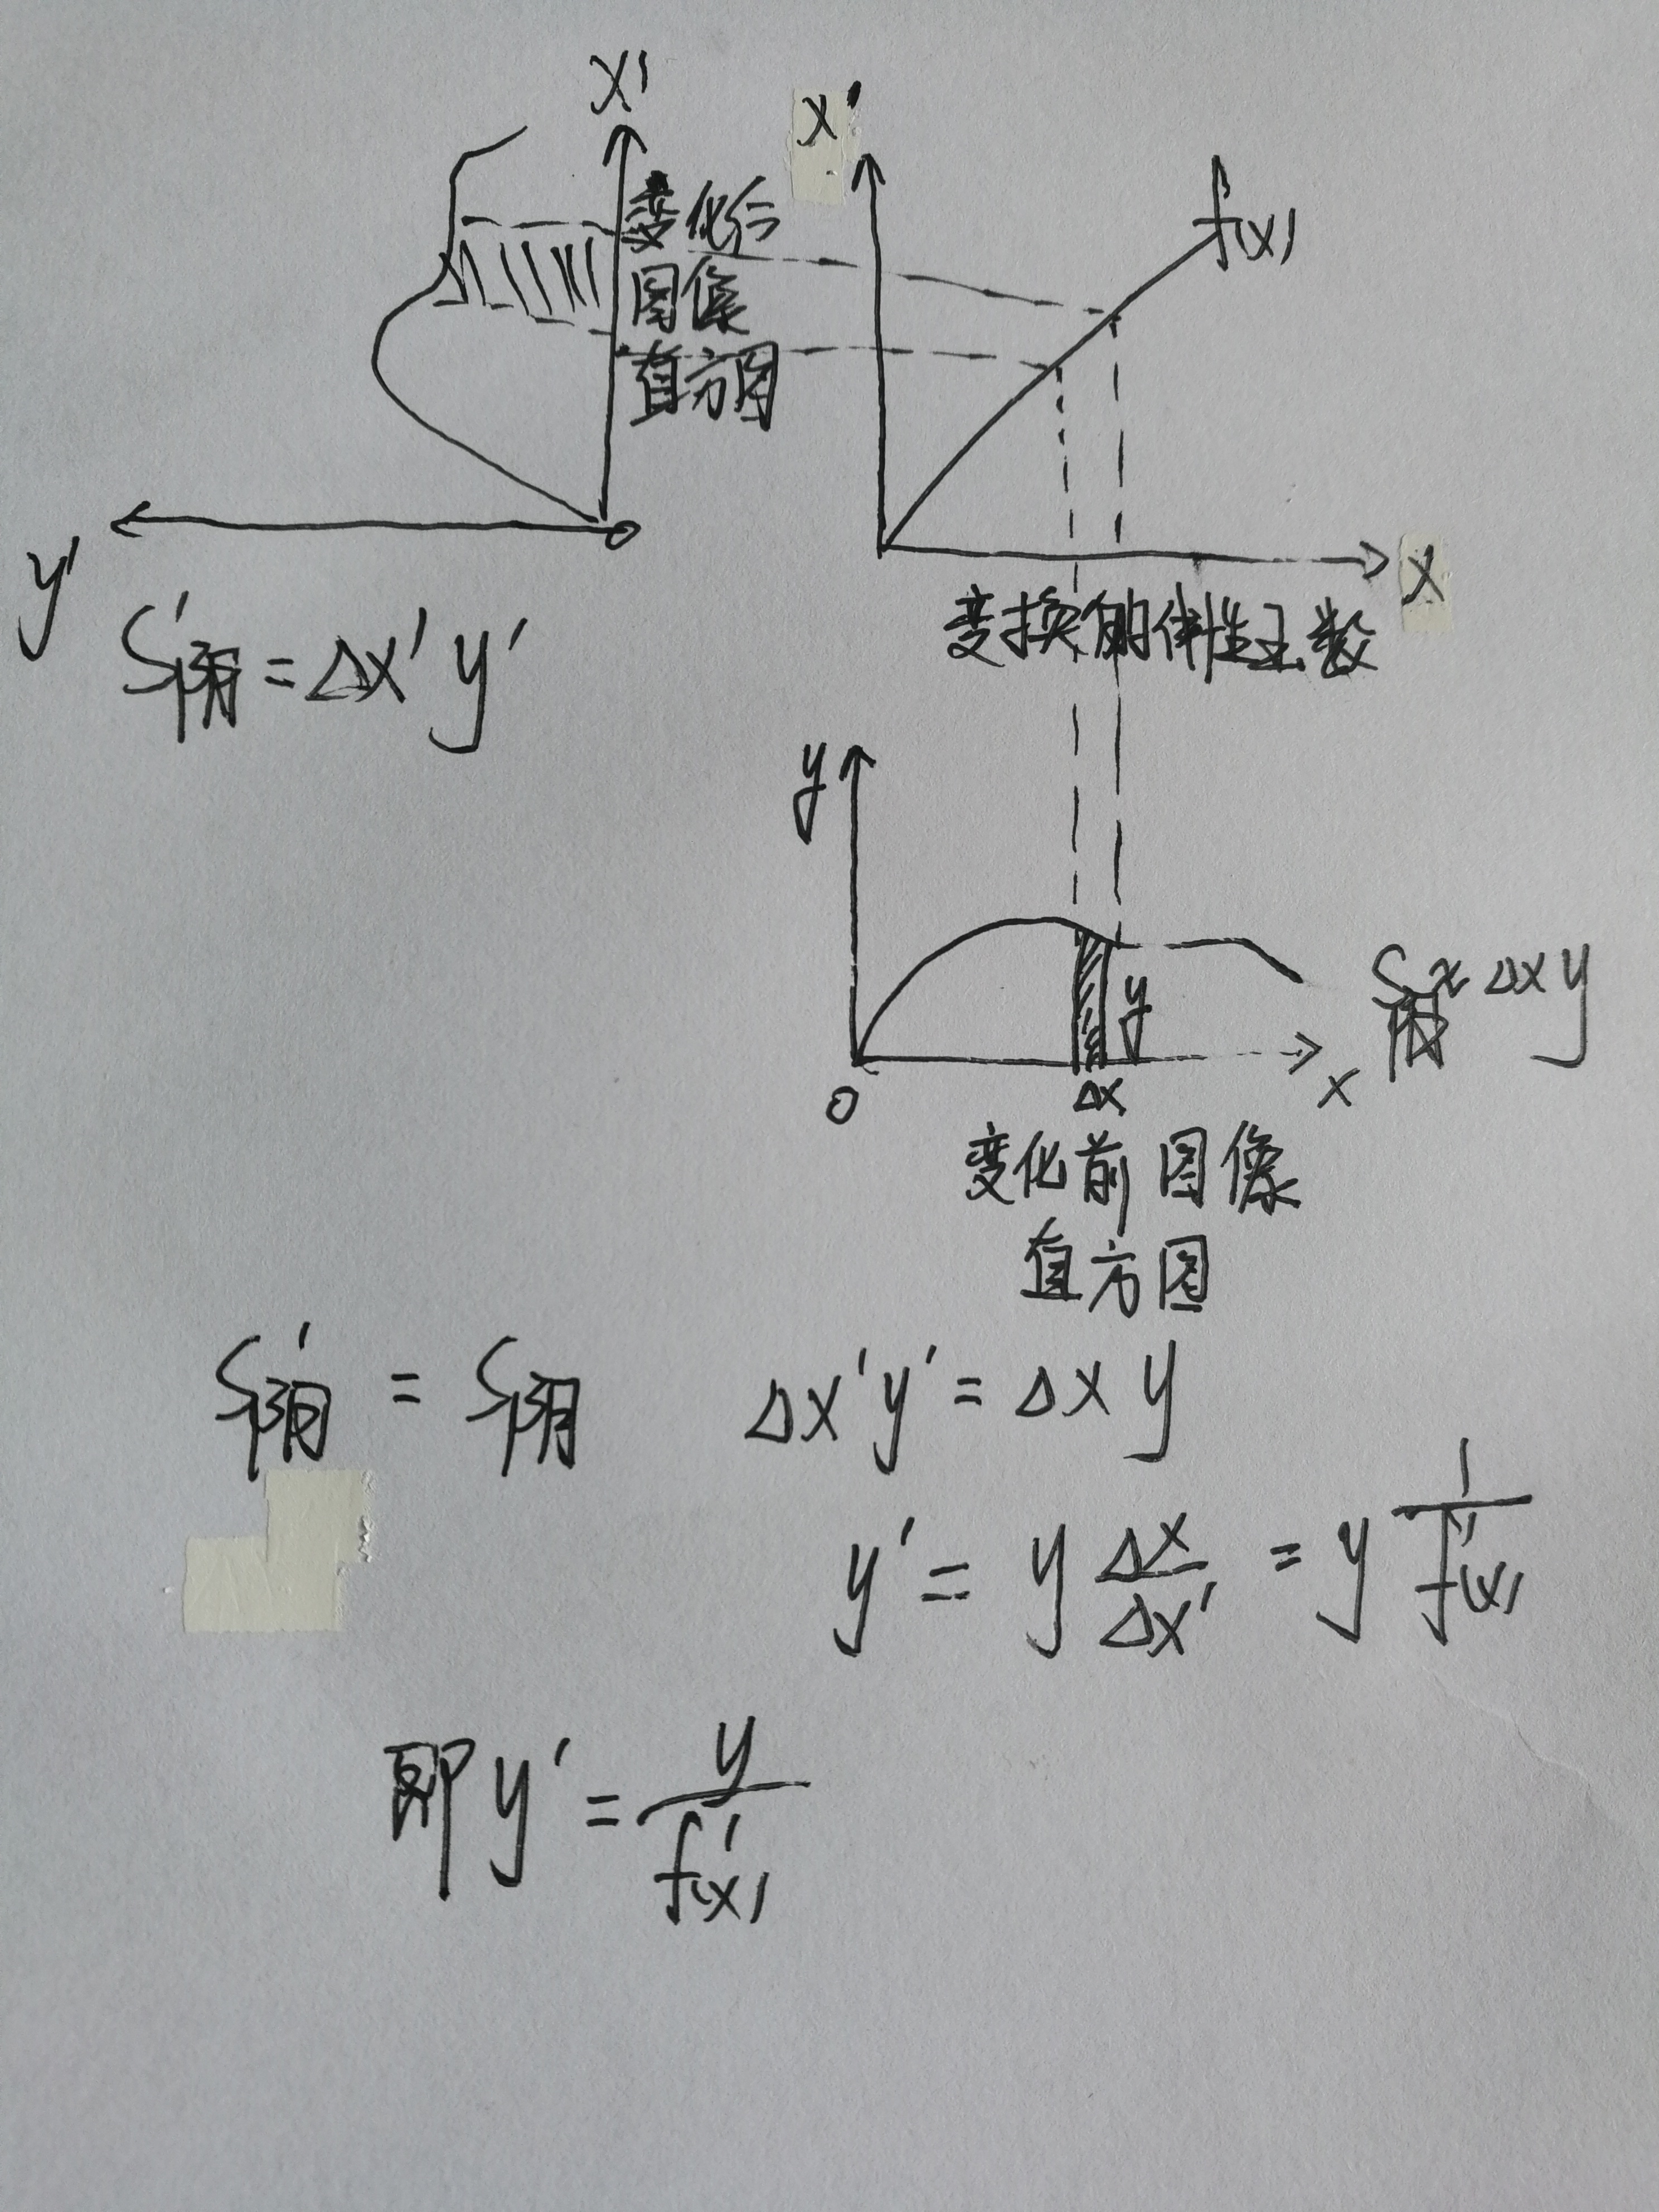 x'
x'
f(x)
变化后
图像
直方图
y'
O
x
S'阴 = Δx' y'
变换的线性函数
y
S阴 = Δx y
y
O
Δx
x
变化前图像
直方图
S'阴 = S阴 Δx'y' = Δx y
y' = y Δx/Δx' = y 1/f'(x)
即 y' = y/f'(x)